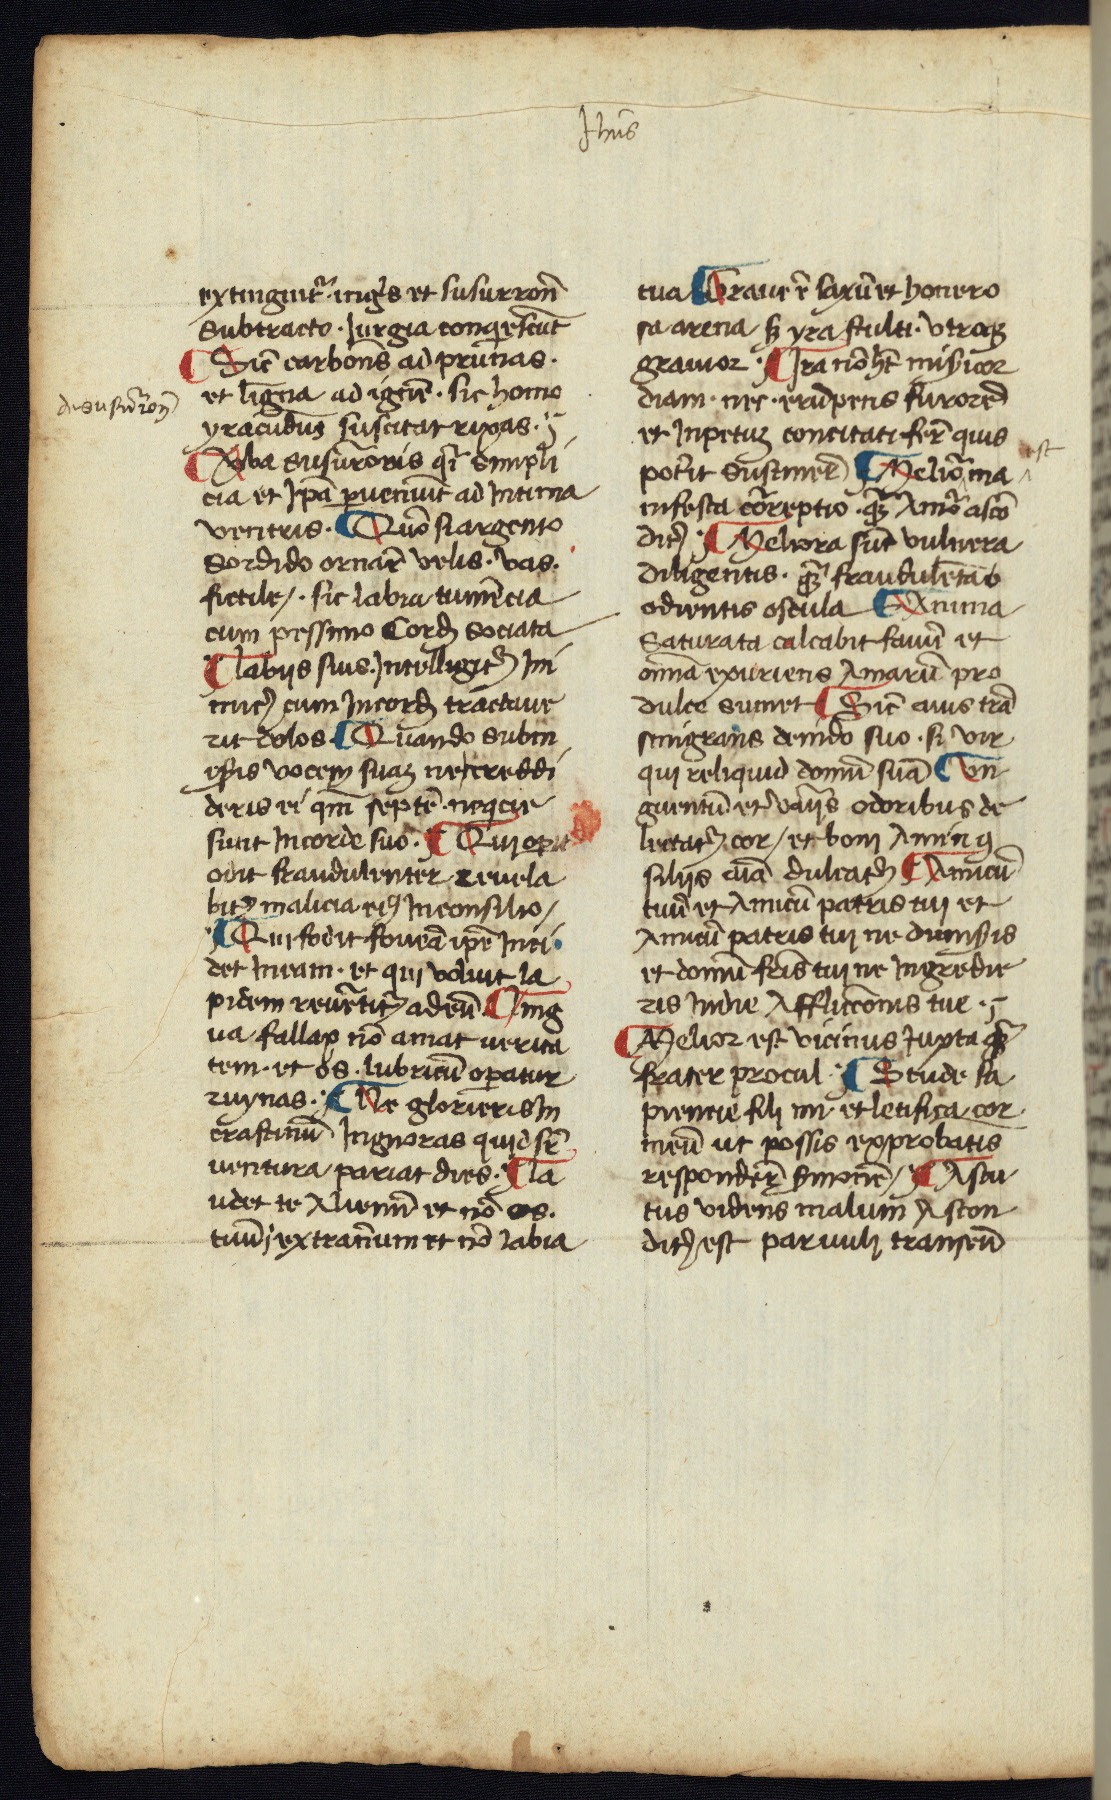 Jhūs
extinguit᷑ · ignis et susurron̄
subtracto · Jurgia conquescūt
¶ Sic̄ carbon̄s ad prunas ·
et ligna ad ignē · sic homo
yracūdus suscitat rixas ·
de susurron̄
¶ Verba susurronis q̄i simpli
cia et ip̄a perveniūt ad intima
ventris · ¶ Quō si argento
sordido ornar̄ velis · vas ·
fictile / · sic labia tumēcia
cum pessimo Corde sociata
¶ labijs suis · Intelligit᷑ Ini
micus cum Incorde tractave
rit dolos · ¶ Quando submi
serit vocem suaʒ ne credi
deris ei qm̄ septē · nequicie
sunt Incorde suo · ¶ Qui operit
odit fraudulenter revela
bit᷑ malicia eiꝰ Inconsilio /
¶ Qui fodit foveā ip̄e Inci
det Ineam · et qui volvit la
pidem revertit᷑ ad eū ¶ ling
ua fallax nō amat verita
tem · et os · lubricū operatur
ruynas · ¶ Ne glorieris In
crastinū Ingnoras quid sr̄
ventura pariat dies · ¶ la
udet te Alienū et nō os ·
tuū / extraneum et nō labia
tua ¶ Grave ē saxū et honero
sa arena sʒ yra stulti · vtroqʒ
gravior · ¶ Ira nō hēt misericor
diam · nec · erūpens furored
et Inpetuʒ concitati ferr̄ quis
poterit sustinere ¶ Melior est ma
infesta correptio · qʒ Amor ascō
dit᷑ ¶ Meliora sūt vulnera
diligentis · qʒ fraudulēta
odientis oscula ¶ Anima
saturata calcabit favū et
omīa exuriens Amarū pro
dulce sumet ¶ Sic̄ avis trā
smigrans denido suo · si vir
qui reliquid domū suā ¶ Vn
guentū et varijs odoribus de
lectat᷑ cor / et boni Amici ꝯ
silijs aīa dulcat᷑ ¶ Amicū
tuū et Amicū patris tui et
Amicū patris tui ne dimisis
et domū fris tui ne Ingredie
ris Indie Afflictionis tue ·
¶ Melior est vicinus Juxta qʒ
frater procul · ¶ Stude sa
piencie fili mi · et letifica cor
meū ut possis exprobatis
respondere sermonē / ¶ Astu
tus videns malum Ascon
dit᷑ est parvuli transeū